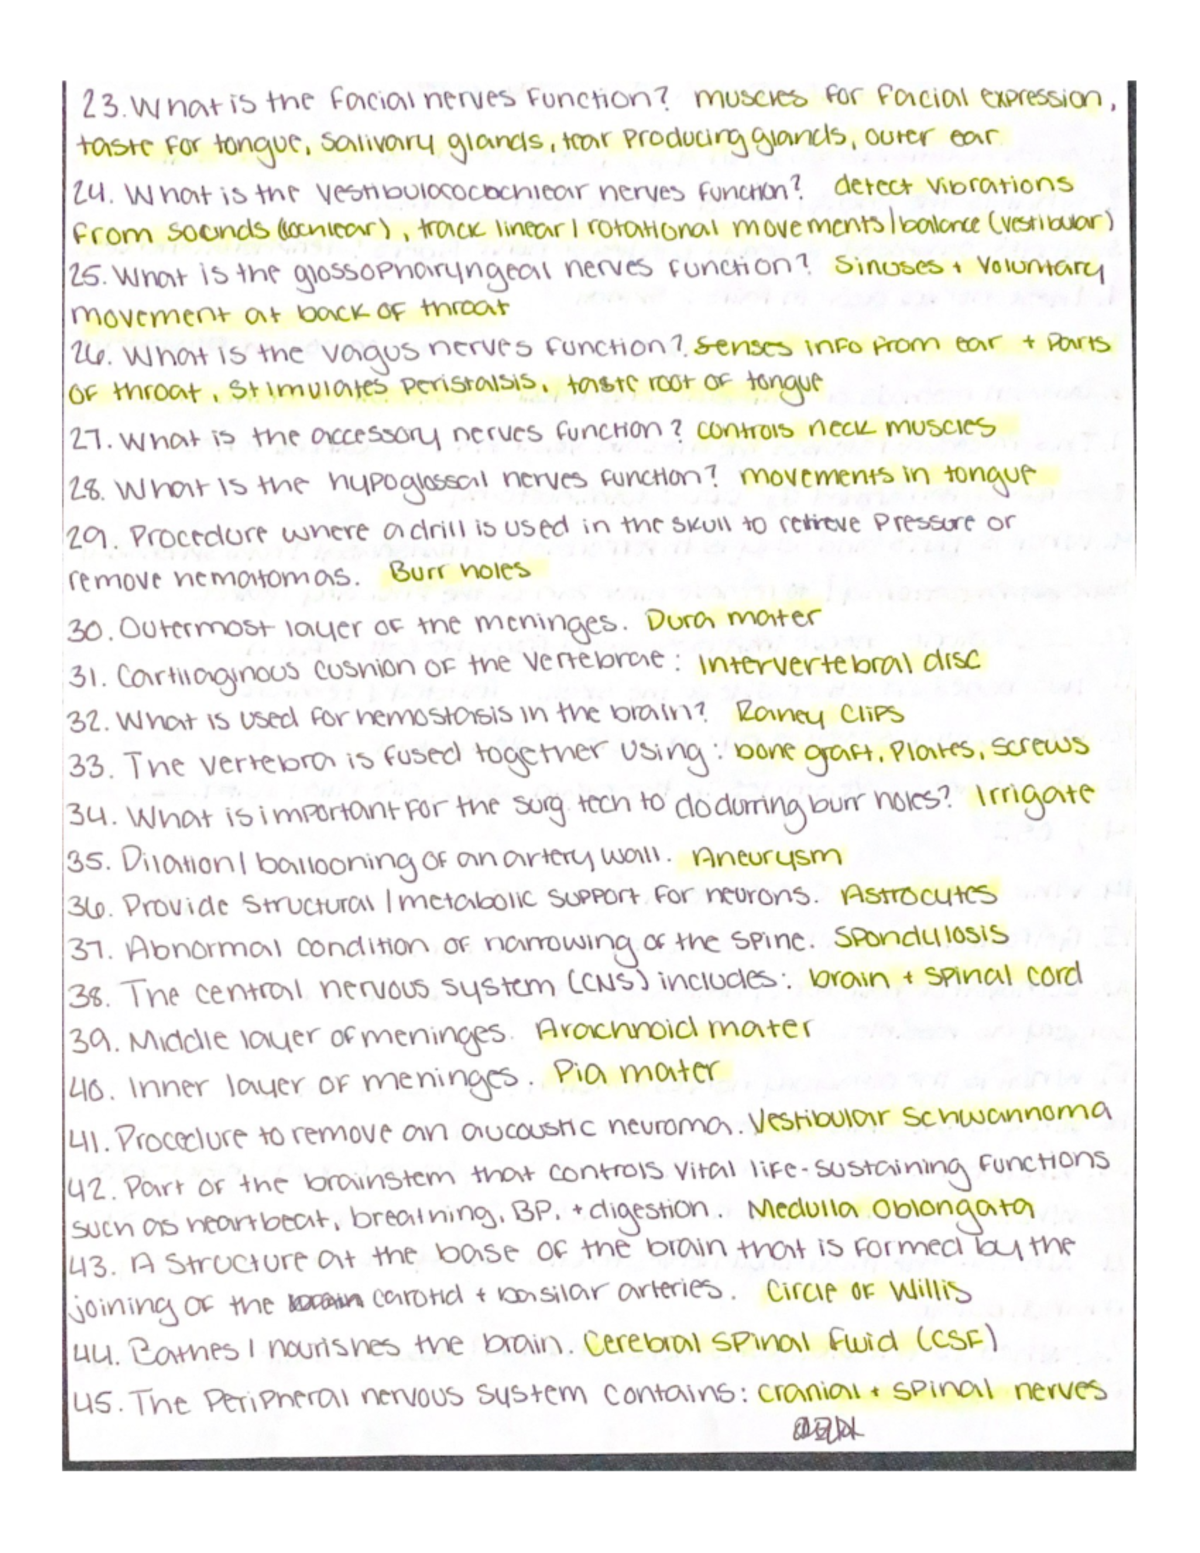 23. What is the facial nerves function? muscles for facial expression,
taste for tongue, salivary glands, tear producing glands, outer ear.
24. What is the vestibulococochlear nerves function? detect vibrations
from sounds (cochlear), track linear/rotational movements/balance (vestibular)
25. What is the glossopharyngeal nerves function? Sinuses + voluntary
movement at back of throat
26. What is the vagus nerves function? Senses info from ear + parts
of throat, stimulates peristalsis, taste root of tongue
27. What is the accessory nerves function? controls neck muscles
28. What is the hypoglossal nerves function? movements in tongue
29. Procedure where a drill is used in the skull to retrieve pressure or
remove hematomas. Burr holes
30. Outermost layer of the meninges. Dura mater
31. Cartilaginous cushion of the vertebrae: Intervertebral disc
32. What is used for hemostasis in the brain? Raney Clips
33. The vertebra is fused together using: bone graft, plates, screws
34. What is important for the surg. tech to do durring burr holes? Irrigate
35. Dilation/ballooning of an artery wall. Aneurysm
36. Provide structural/metabolic support for neurons. Astrocytes
37. Abnormal condition of narrowing of the spine. Spondylosis
38. The central nervous system (CNS) includes: brain + spinal cord
39. Middle layer of meninges. Arachnoid mater
40. Inner layer of meninges. Pia mater
41. Procedure to remove an aucoustic neuroma. Vestibular Schwannoma
42. Part of the brainstem that controls vital life-sustaining functions
such as heartbeat, breathing, BP, + digestion. Medulla Oblongata
43. A structure at the base of the brain that is formed by the
joining of the carotid + basilar arteries. Circle of Willis
44. Bathes/nourishes the brain. Cerebral Spinal Fluid (CSF)
45. The Peripheral nervous system contains: cranial + spinal nerves